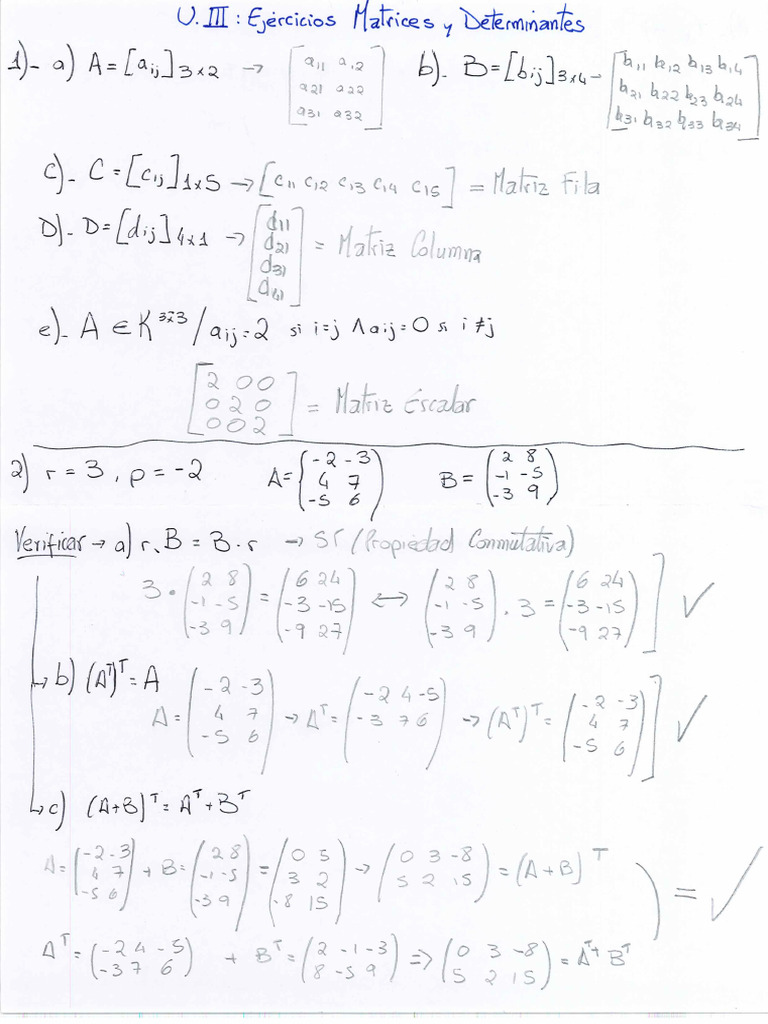 U.III: Ejercicios Matrices y Determinantes
1)- a) A=[aij]3x2 → [a11 a12
a21 a22
a31 a32]
b)- B=[bij]3x4 - [b11 b12 b13 b14
b21 b22 b23 b24
b31 b32 b33 b34]
c)- C=[cij]1x5 → [c11 c12 c13 c14 c15] = Matriz Fila
D)- D=[dij]4x1 → [d11
d21
d31
d41] = Matriz Columna
e)- A ∈ K 3x3 / aij=2 si i=j ∧ aij=0 si i≠j
[2 0 0
0 2 0
0 0 2] = Matriz Escalar
2) r=3, p=-2
A=(-2 -3
4 7
-5 6)
B=(2 8
-1 -5
-3 9)
Verificar → a) r.B = B.r → SÍ (Propiedad Conmutativa)
3·(2 8
-1 -5
-3 9) = (6 24
-3 -15
-9 27) ↔ (2 8
-1 -5
-3 9).3 = (6 24
-3 -15
-9 27)] ✓
↳ b) (A^T)^T = A
A=(-2 -3
4 7
-5 6) → A^T=(-2 4 -5
-3 7 6) → (A^T)^T = (-2 -3
4 7
-5 6)] ✓
↳ c) (A+B)^T = A^T + B^T
A=(-2 -3
4 7
-5 6) + B=(2 8
-1 -5
-3 9) = (0 5
3 2
-8 15) → (0 3 -8
5 2 15) = (A+B)^T
A^T=(-2 4 -5
-3 7 6) + B^T=(2 -1 -3
8 -5 9) ⇒ (0 3 -8
5 2 15) = A^T + B^T
) = ✓